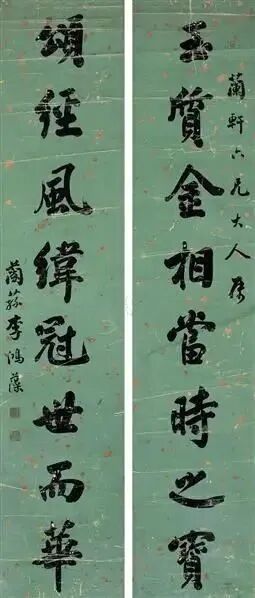 蘭軒六兄大人屬
玉質金相當時之寶
頌經風緯冠世而華
蘭蓀李鴻藻